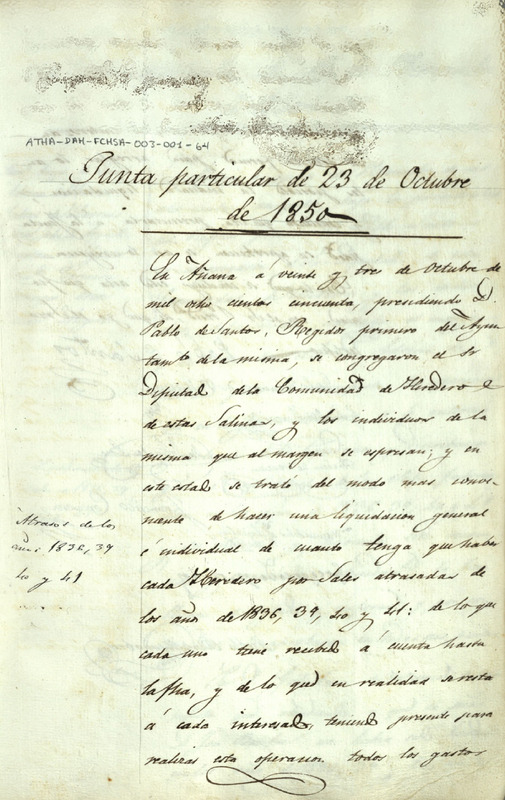 ATHA-DAH-FCHSA-003-001-64
Junta particular de 23 de Octubre
de 1850
En Añana á veinte y tres de Octubre de
mil ocho cientos cincuenta, presidiendo D.
Pablo de Santos, Regidor primero del Ayun
tamto de la misma, se congregaron el Sr
Diputad de la Comunidad de Heredero s
de estas Salinas, y los individuos de la
misma que al margen se espresan; y en
este estado se trató del modo mas conve-
niente de hacer una liquidacion general
é individual de cuanto tenga que haber
cada Heredero por Sales atrasadas de
los años de 1836, 39, 40 y 41: de lo que
cada uno tiene recibido á cuenta hasta
la fha, y de lo que en realidad se resta
á cada interesado, teniendo presente para
realizar esta operacion todos los gastos
Atrasos de los
años 1836, 39
40 y 41